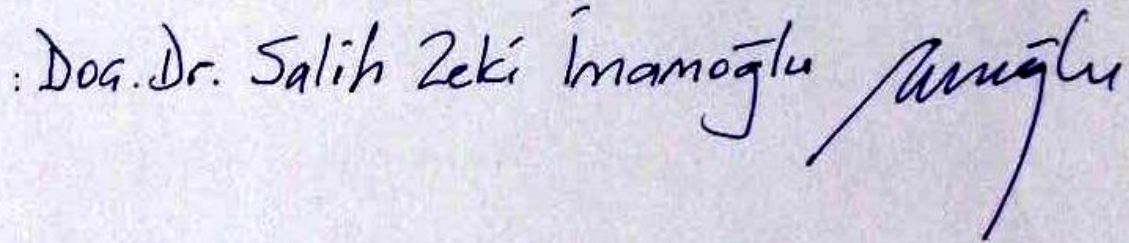 : Doç. Dr. Salih Zeki İmamoğlu